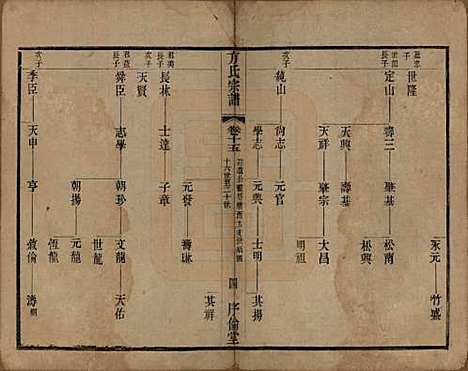 世隆
長子
定山 壽三 肇基 松南 永元 竹盛
天興 壽基 松興
天祥 肇宗 大昌
明祖
次子
繞山 尚志 元官
學志 元興 士明 其揚
方氏宗譜
卷十五
四
序倫堂
長子
長林 士達 子章
元發 壽琳 其祥
天賢
長子
舜臣 志學 朝珍 文龍 天佑
世龍
朝揚 元龍
恆龍
次子
季臣 天申 亨 敘倫 濤